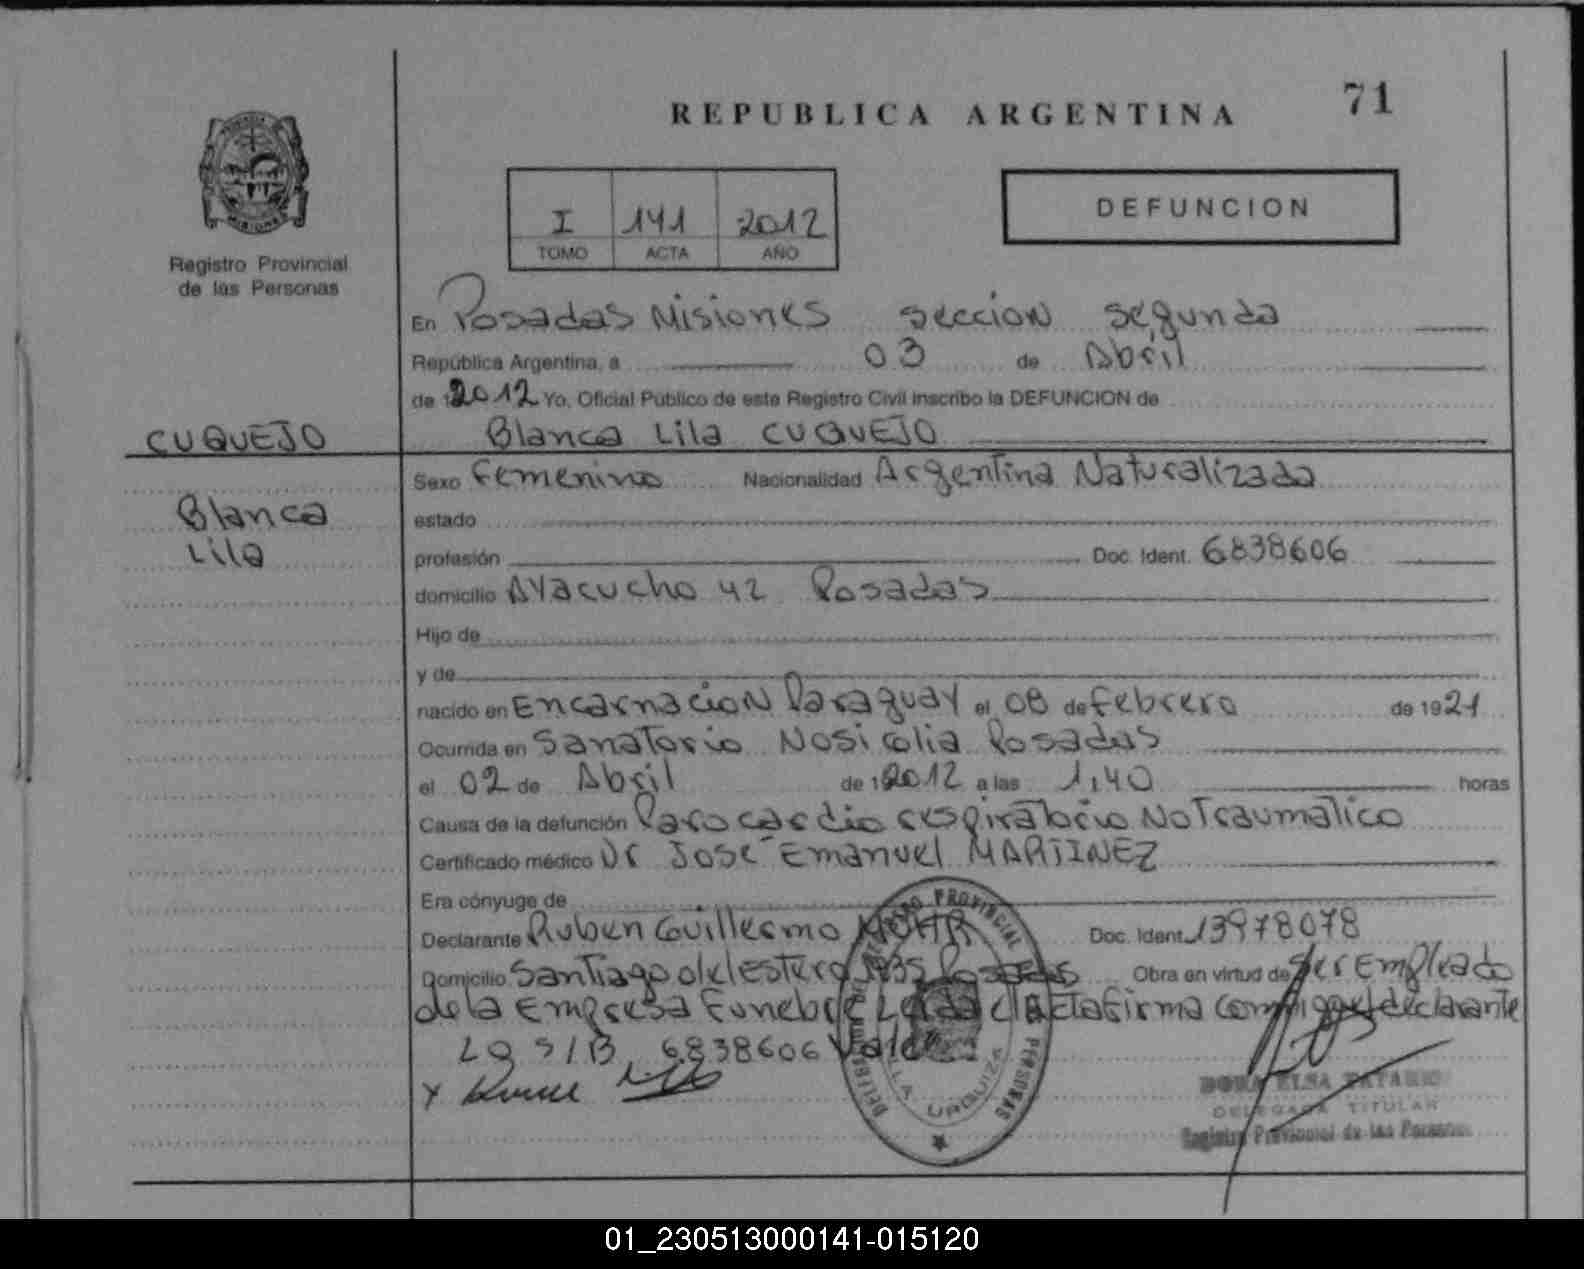 REPUBLICA ARGENTINA
71
DEFUNCION
I 141 2012
TOMO ACTA AÑO
MISIONES
Registro Provincial
de las Personas
En Posadas Misiones seccion segunda
República Argentina, a 03 de Abril
de 2012 Yo, Oficial Público de este Registro Civil inscribo la DEFUNCION de
CUQUEJO
Blanca Lila CUQUEJO
Blanca
Lila
Sexo Femenino Nacionalidad Argentina Naturalizada
estado
profesión Doc. Ident. 6838606
domicilio Ayacucho 42 Posadas
Hijo de
y de
nacido en Encarnacion Paraguay el 08 de febrero de 1921
Ocurrida en Sanatorio Nosiglia Posadas
el 02 de Abril de 2012 a las 1,40 horas
Causa de la defunción Paro cardio respiratorio No Traumatico
Certificado médico Dr José Emanuel MARTINEZ
Era cónyuge de
Declarante Ruben Guillermo Doc. Ident. 13978078
Domicilio Santiago del estero 1935 Posadas Obra en virtud de ser Empleado
de la Empresa Funebre Leida el Acta firma conmigo el declarante
6838606 Vale
PROVINCIAL
PERSONAS
URQUIZA
DORA ELSA
DELEGADA TITULAR
Registro Provincial de las Personas
01_230513000141-015120